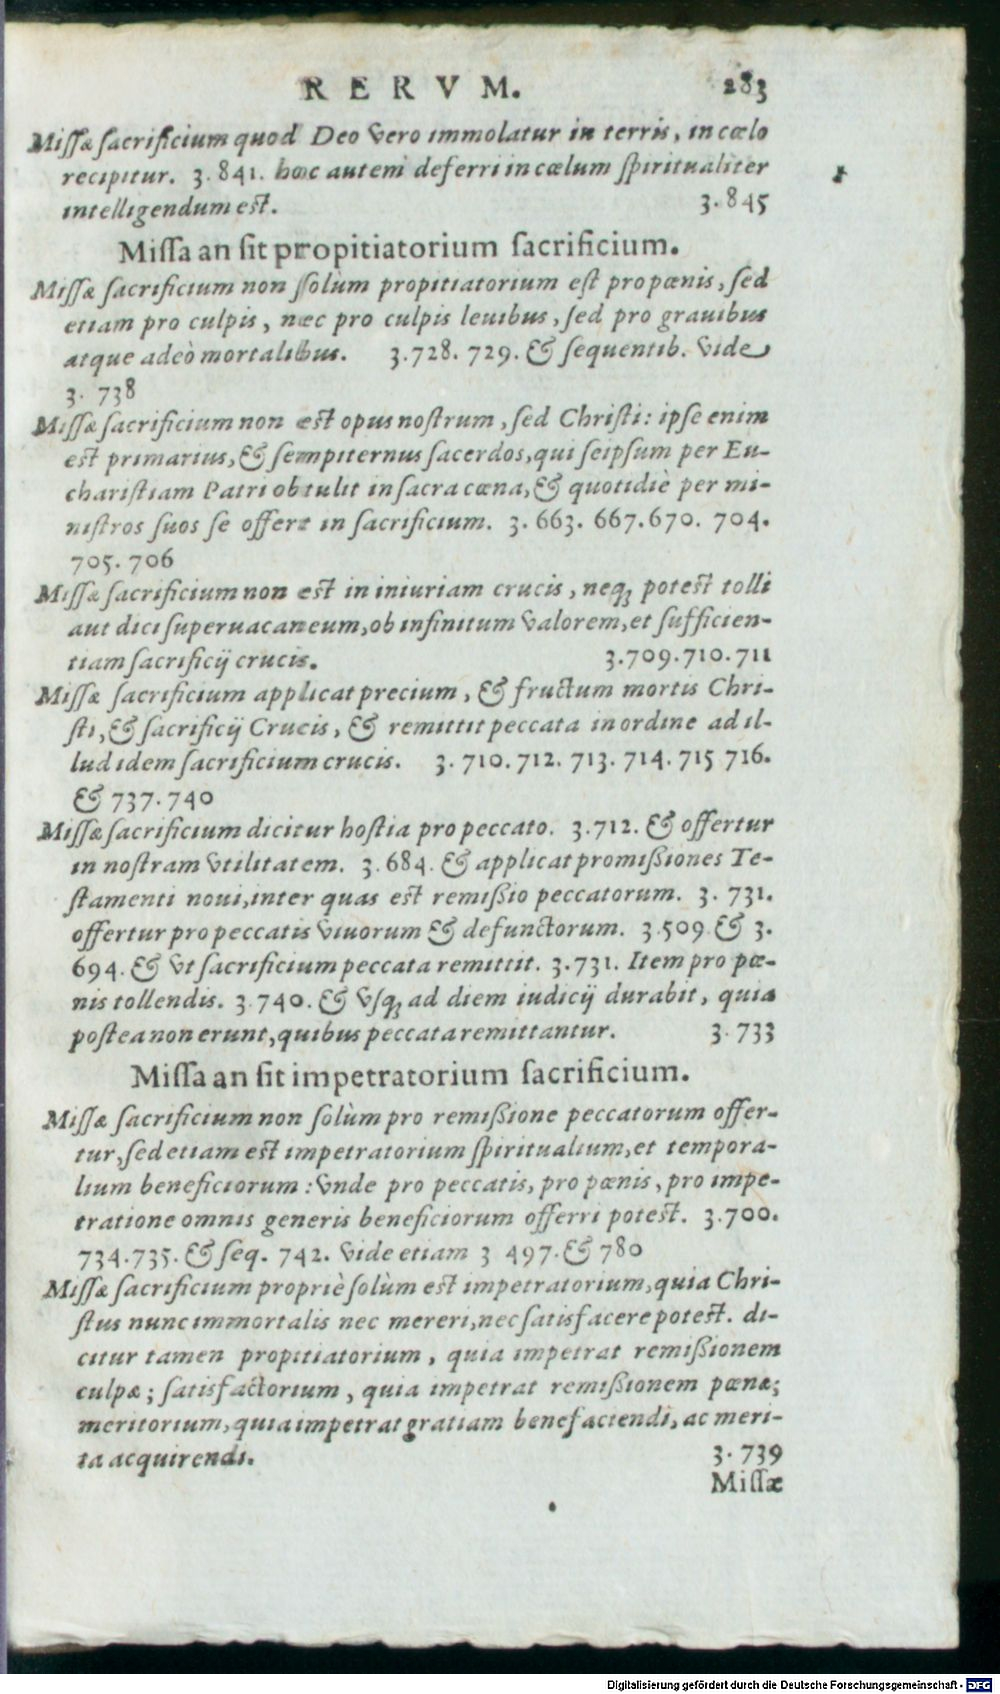 RERVM. 283
Missæ sacrificium quod Deo vero immolatur in terris, in cœlo
recipitur. 3. 841. hoc autem deferri in cœlum spiritualiter
intelligendum est. 3. 845
Missa an sit propitiatorium sacrificium.
Missæ sacrificium non solùm propitiatorium est pro pœnis, sed
etiam pro culpis, nec pro culpis leuibus, sed pro grauibus
atque adeò mortalibus. 3. 728. 729. & sequentib. Vide
3. 738
Missæ sacrificium non est opus nostrum, sed Christi: ipse enim
est primarius, & sempiternus sacerdos, qui seipsum per Eu-
charistiam Patri obtulit in sacra cœna, & quotidiè per mi-
nistros suos se offert in sacrificium. 3. 663. 667. 670. 704.
705. 706
Missæ sacrificium non est in iniuriam crucis, neq; potest tolli
aut dici superuacaneum, ob infinitum valorem, et sufficien-
tiam sacrificij crucis. 3. 709. 710. 711
Missæ sacrificium applicat precium, & fructum mortis Chri-
sti, & sacrificij Crucis, & remittit peccata in ordine ad il-
lud idem sacrificium crucis. 3. 710. 712. 713. 714. 715 716.
& 737. 740
Missæ sacrificium dicitur hostia pro peccato. 3. 712. & offertur
in nostram vtilitatem. 3. 684. & applicat promißiones Te-
stamenti noui, inter quas est remißio peccatorum. 3. 731.
offertur pro peccatis viuorum & defunctorum. 3. 509 & 3.
694. & vt sacrificium peccata remittit. 3. 731. Item pro pœ-
nis tollendis. 3. 740. & vsq; ad diem iudicij durabit, quia
postea non erunt, quibus peccata remittantur. 3. 733
Missa an sit impetratorium sacrificium.
Missæ sacrificium non solùm pro remißione peccatorum offer-
tur, sed etiam est impetratorium spiritualium, et tempora-
lium beneficiorum: vnde pro peccatis, pro pœnis, pro impe-
tratione omnis generis beneficiorum offerri potest. 3. 700.
734. 735. & seq. 742. Vide etiam 3 497. & 780
Missæ sacrificium propriè solùm est impetratorium, quia Chri-
stus nunc immortalis nec mereri, nec satisfacere potest. di-
citur tamen propitiatorium, quia impetrat remißionem
culpæ; satisfactorium, quia impetrat remißionem pœnæ;
meritorium, quia impetrat gratiam benefaciendi, ac meri-
ta acquirendi. 3. 739
Missæ
Digitalisierung gefördert durch die Deutsche Forschungsgemeinschaft - DFG